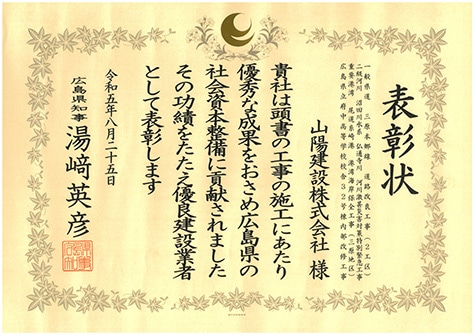 表彰状
一般県道 三原本郷線 道路改良工事(2工区)
二級河川 沼田川水系 仏通寺川 河川激甚災害対策特別緊急工事
重要港湾 尾道糸崎港 港湾海岸保全工事(三原地区)
広島県立府中高等学校校舎32号棟内部改修工事
山陽建設株式会社 様
貴社は頭書の工事の施工にあたり
優秀な成果をおさめ広島県の
社会資本整備に貢献されました
その功績をたたえ優良建設業者
として表彰します
令和五年八月二十五日
広島県知事 湯﨑英彦